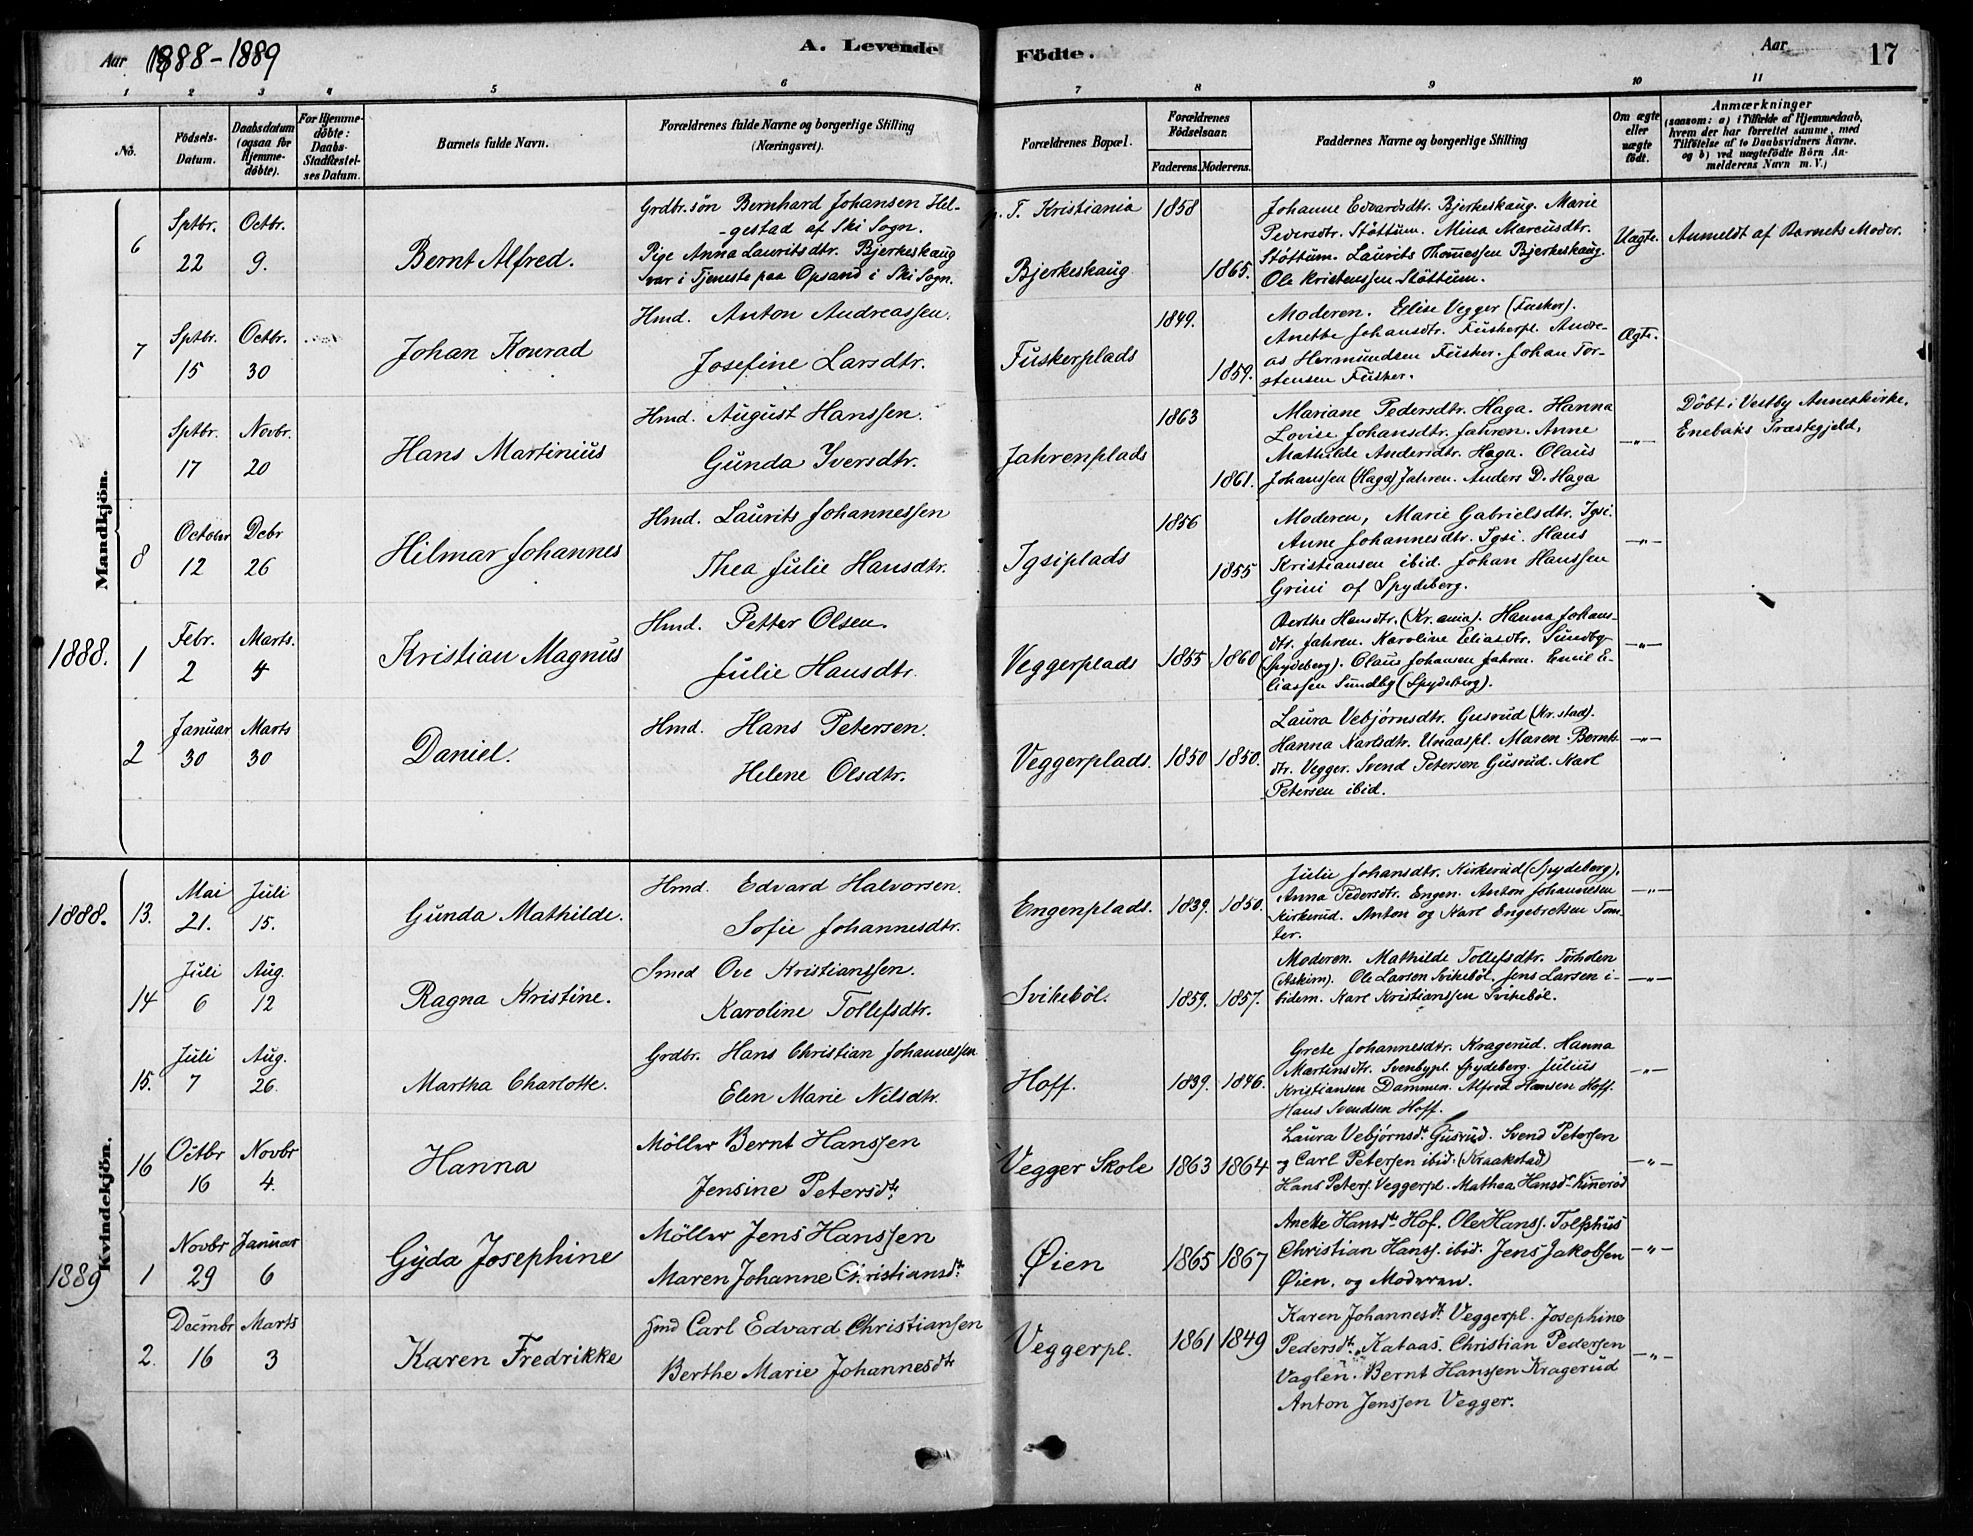 Aar 1888-1889
A. Levende
Födte.
Aar
17
1 2 3 4 5 6 7 8 9 10 11
No.
Födsels-Datum.
Daabsdatum (ogsaa for Hjemme-döbte).
For Hjemme-döbte: Daabs-Stadfæstel-ses Datum.
Barnets fulde Navn.
Forældrenes fulde Navne og borgerlige Stilling (Næringsvei).
Forældrenes Bopæl.
Forældrenes Födselsaar.
Faderens. Moderens.
Faddernes Navne og borgerlige Stilling
Om ægte eller uægte födt.
Anmærkninger
(saasom: a) i Tilfælde af Hjemmedaab,
hvem der har forrettet samme, med
Tilföielse af to Daabsvidners Navne.
og b) ved uægtefödte Börn An-
melderens Navn m. V.)
Mandkjön.
6
Sptbr. 22
Octbr. 9.
Bernt Alfred.
Grdbr. søn Bernhard Johansen Hel-
-gestad af Ski Sogn.
Pige Anna Lauritsdtr. Bjerkeskaug
var i Tjeneste paa Opsand i Ski Sogn.
p. T. Kristiania
Bjerkeskaug
1858
1865.
Johanne Edvardsdtr. Bjerkeskaug. Marie
Pedersdtr. Støttum. Mina Marcusdtr.
Støttum. Laurits Thomassen Bjerkeskaug.
Ole Kristenssen Støttum.
Uægte.
Anmeldt af Barnets Moder.
7
Sptbr. 15
Octbr. 30
Johan Konrad
Hmd. Anton Andreassen.
Josefine Larsdtr.
Fuskerplads
1849.
1859.
Moderen. Elise Vegger (Fusker).
Anette Johansdtr. Fuskerpl. Andre-
as Hermundsen Fusker. Johan Tor-
stensen Fusker.
Ægte.
Sptbr. 17
Novbr. 20
Hans Martinius
Hmd. August Hanssen.
Gunda Iversdtr.
Jahrenplads
1863
1861.
Mariane Pedersdtr. Haga. Hanna
Lovise Johansdtr. Jahren. Anne
Mathilde Andersdtr. Haga. Olaus
Johanssen (Haga) Jahren. Anders D. Haga
-"-
Döbt i Vestby Anneskirke,
Enebaks Præstegjeld,
8
October 12
Debr 26
Hilmar Johannes
Hmd. Laurits Johannessen
Thea Julie Hansdtr.
Igsiplads
1856
1855
Moderen, Marie Gabrielsdtr. Igsi.
Anne Johannesdtr. Igsi. Hans
Kristiansen ibid. Johan Hanssen
Grini af Spydeberg.
-"-
1888.
1
Febr. 2
Marts. 4
Kristian Magnus
Hmd. Petter Olsen.
Julie Hansdtr.
Veggerplads
1855 1860
Berthe Hansdtr. (Kr.ania). Hanna Johans-
dtr. Jahren. Karoline Eliasdtr. Sundby
(Spydeberg). Olaus Johansen Jahren. Emil E-
liassen Sundby (Spydeberg).
-"-
2
Januar 30
Marts 30
Daniel.
Hmd. Hans Petersen.
Helene Olsdtr.
Veggerplads.
1850 1850.
Laura Vebjørnsdtr. Gusrud (Kr.stad).
Hanna Karlsdtr. Unaaspl. Maren Bernts-
dtr. Vegger. Svend Petersen Gusrud. Karl
Petersen ibid.
-"-
Kvindekjön.
1888.
13.
Mai 21.
Juli 15.
Gunda Mathilde.
Hmd. Edvard Halvorsen.
Sofie Johannesdtr.
Engenplads.
1839. 1850.
Julie Johansdtr. Kirkerud (Spydeberg),
Anna Pedersdtr. Engen. Anton Johannesen
Kirkerud. Anton og Karl Engebretsen Tom-
ter.
-"-
14
Juli 6
Aug. 12
Ragna Kristine.
Smed Ove Kristianssen.
Karoline Tollefsdtr.
Svikebøl.
1859. 1857.
Moderen. Mathilde Tollefsdtr. Torholen
(Askim). Ole Larsen Svikebøl. Jens Larsen i-
bidem. Karl Kristianssen Svikebøl.
-"-
15.
Juli 7
Aug. 26.
Martha Charlotte.
Grdbr. Hans Christian Johannessen
Elen Marie Nilsdtr.
Hoff.
1839. 1846.
Grete Johannesdtr. Kragerud. Hanna
Martinsdtr. Svenbypl. Spydeberg. Julius
Kristiansen Dammen. Alfred Hansen Hoff.
Hans Svendsen Hoff.
-"-
16
Octbr 16
Novbr 4.
Hanna
Möller Bernt Hanssen
Jensine Petersdtr.
Vegger Skole
1863 1864
Laura Vebjørnsdtr. Gusrud. Svend Peterssen
og Carl Petersen ibid. (Kraakstad)
Hans Peters. Veggerpl. Mathea Hansdr. Kinnerød
-"-
1889
1
Novbr 29
Januar 6
Gyda Josephine
Möller Jens Hanssen
Maren Johanne Christiansdtr.
Øien
1865 1867
Anette Hansdtr. Hof. Ole Hanss. Tolfshus
Christian Hanss. ibid. Jens Jakobsen
Øien, og Moderen.
-"-
2.
Decmbr 16
Marts 3
Karen Fredrikke
Hmd Carl Edvard Christiansen
Berthe Marie Johannesdtr
Veggerpl.
1861 1849
Karen Johannesdtr. Veggerpl. Josephine
Pedersdtr. Kataas. Christian Pedersen
Vaglen. Bernt Hanssen Kragerud
Anton Jenssen Vegger.
-"-